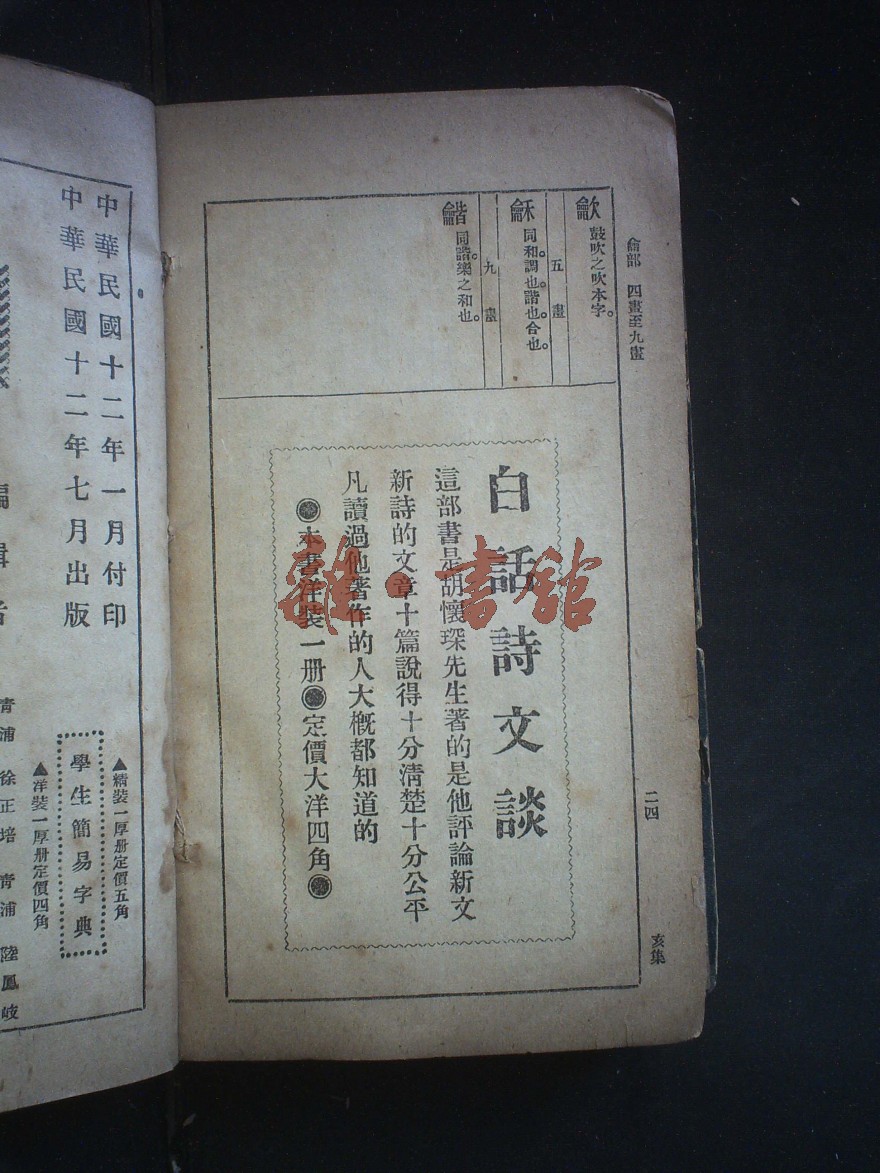 龠部　四畫至九畫
二四
亥集
龡 鼓吹之吹本字。
五畫
龢 同和。調也。諧也。合也。
九畫
龤 同諧。樂之和也。
白話詩文談
這部書是胡懷琛先生著的是他評論新文
新詩的文章十篇說得十分清楚十分公平
凡讀過他著作的人大概都知道的
本書洋裝一册　定價大洋四角
雜·書館
中華民國十二年一月付印
中華民國十二年七月出版
▲精裝一厚册定價五角
學生簡易字典
▲洋裝一厚册定價四角
編輯者
青浦　徐正培　青浦　陸鳳岐